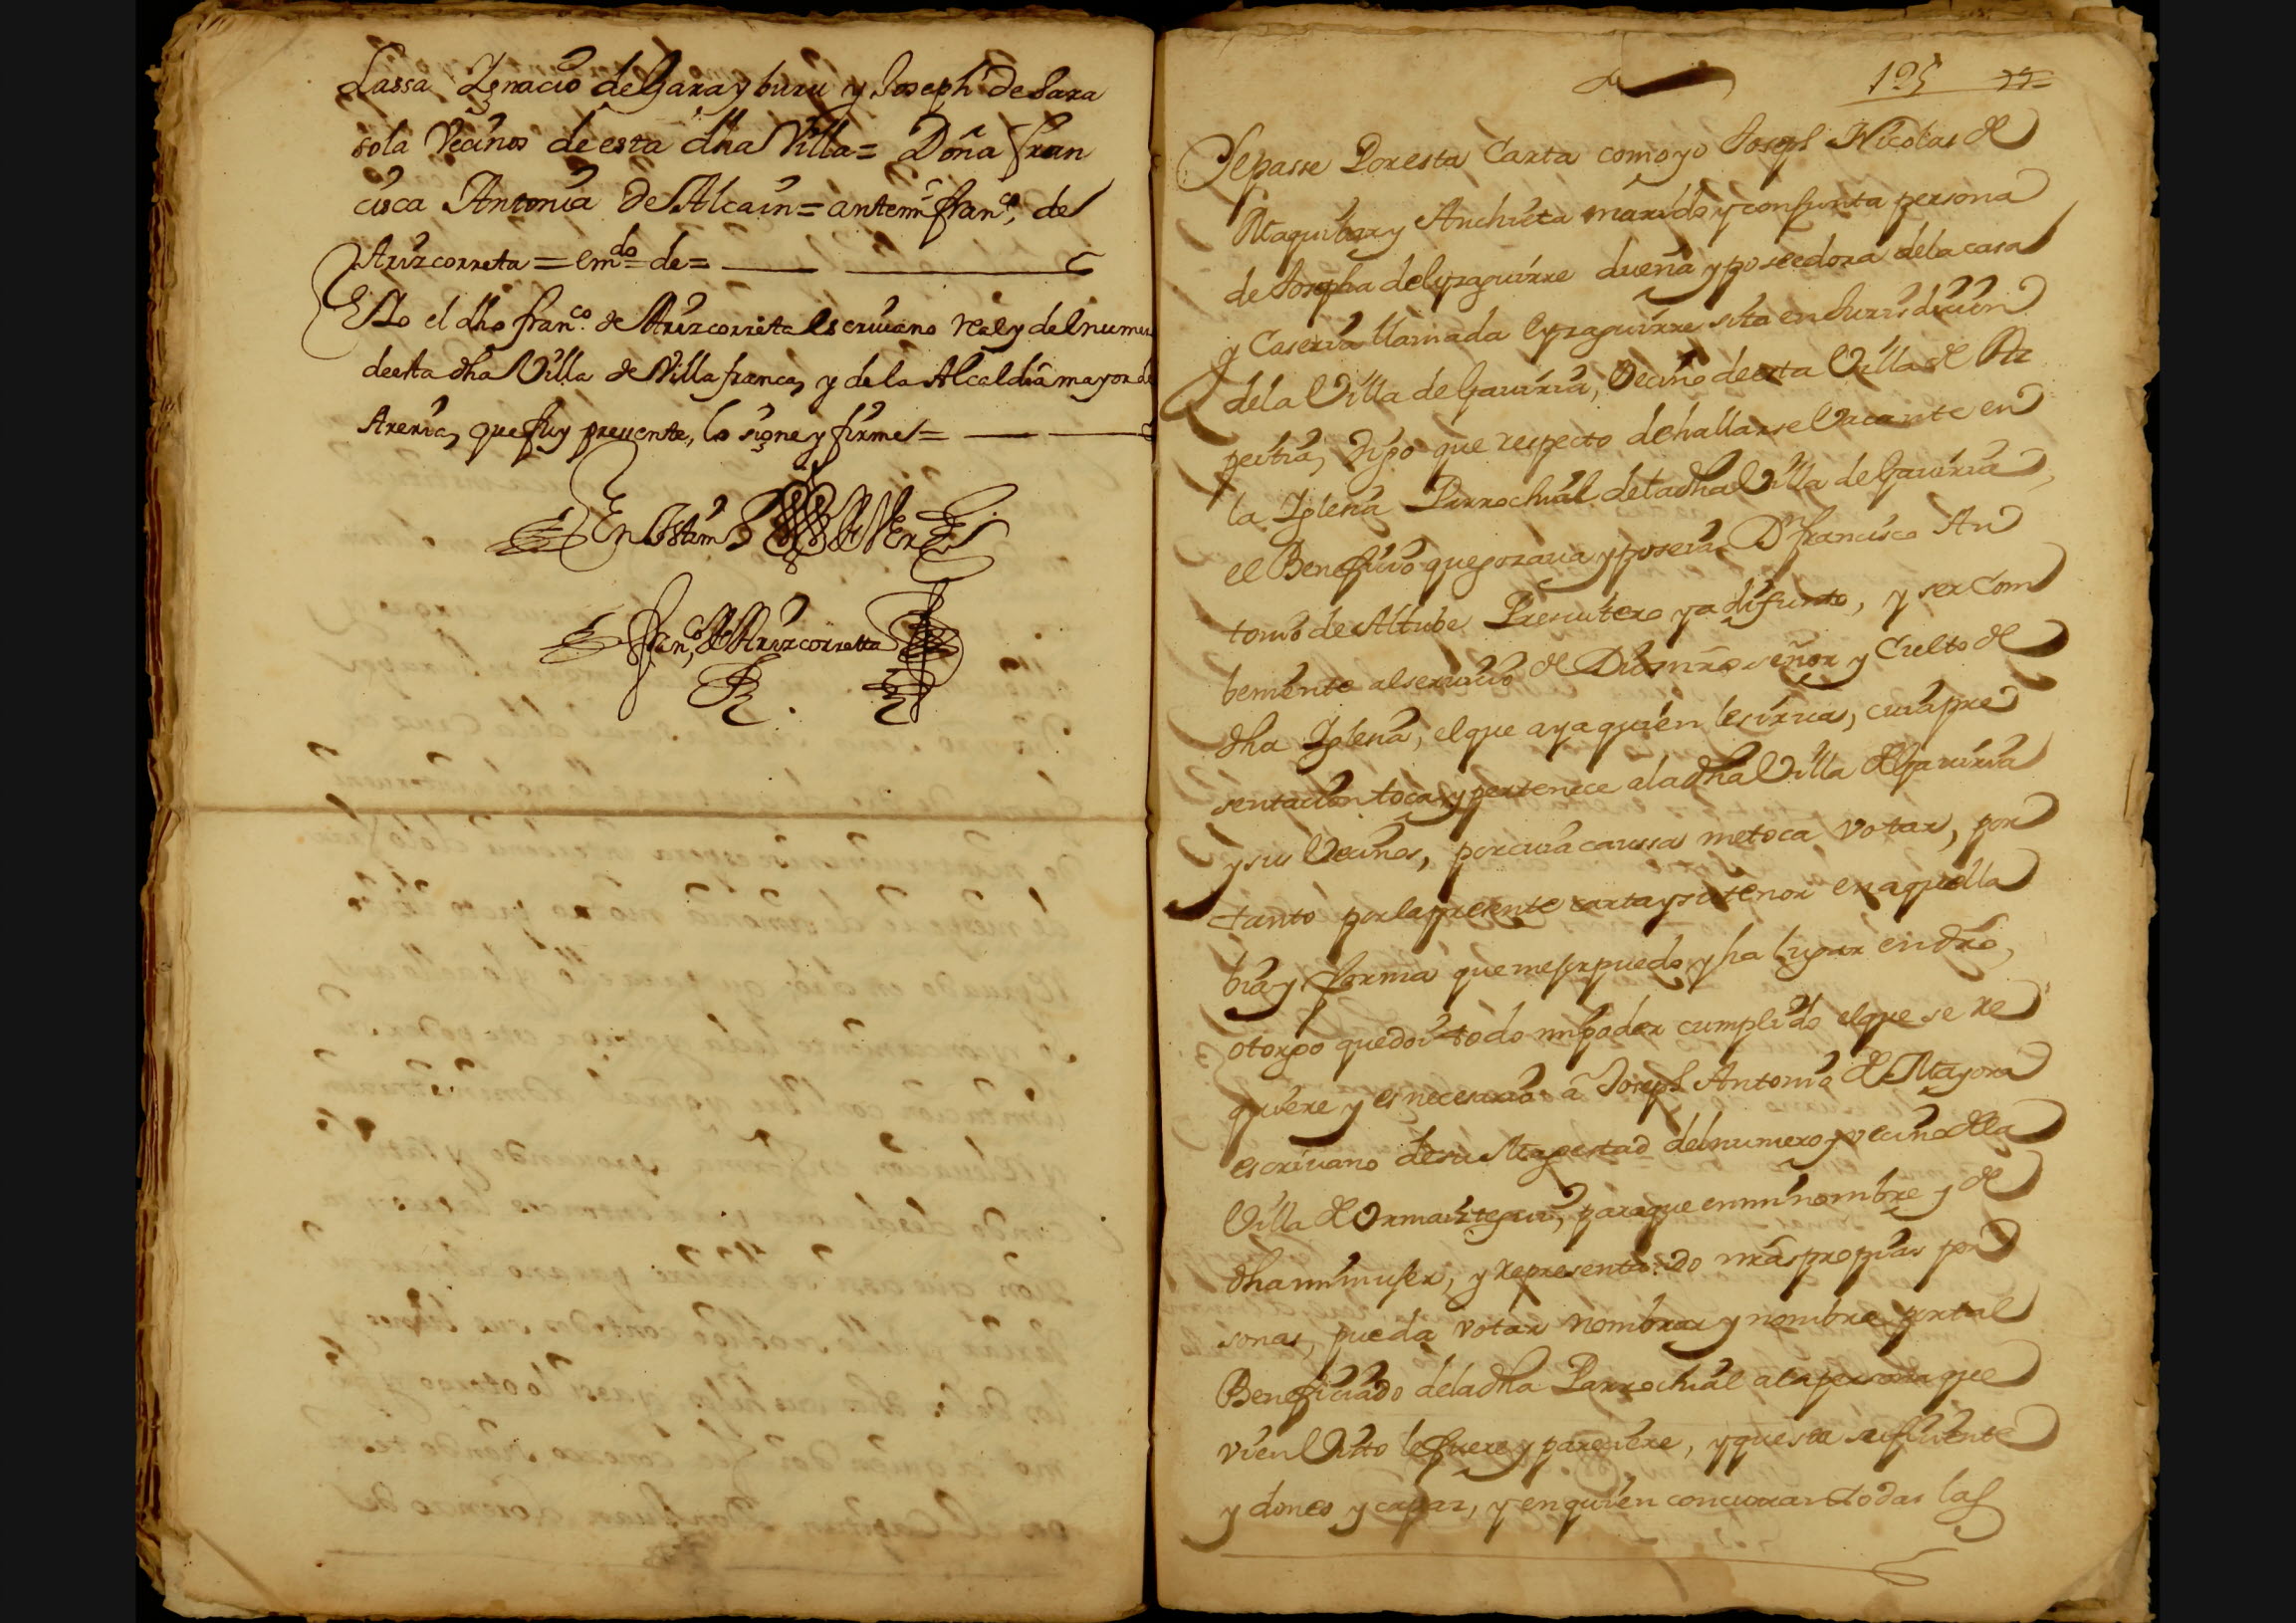 Lassa Ygnacio de Garayburu y Joseph de Sara
sola Vecinos de esta dha Villa = Doña Fran
cisca Antonia de Alcain = antemi Fran.co de
Arizcorreta = em.do = de =
E Yo el dho fran.co de Arizcorreta Escriuano real y del numero
de esta dha Villa de Villafranca, y de la Alcaldia mayor de
Areria, que fuy presente, lo signe y firme =
En testim.o de Ver.d
Fran.co de Arizcorretta
195
Sepasse Por esta Carta como yo Joseph Nicolas de
Ataquibar y Anchieta marido y conjunta persona
de Josepha de Eyzaguirre dueña y poseedora de la casa
y Caseria llamada Eyzaguirre sita en Jurisdicion
de la Villa de Gauiria, Vecino de esta Villa de Az
peitia, digo que respecto de hallarse Vacante en
la Iglesia Parrochial de la dha Villa de Gauiria
el Beneficio que gozaua y poseia D.n francisco An
tonio de Altube Presuitero ya difunto, y ser Com
beniente al seruicio de Dios nro señor y Culto de
dha Iglesia, el que aya quien le sirua, cuia pre
sentacion toca y pertenece a la dha Villa de Gauiria
y sus Vecinos, por cuia caussa me toca votar, por
tanto por la presente carta y su tenor en aquella
bia y forma que mejor puedo y ha lugar en dro,
otorgo que doi todo mi poder cumplido el que se re
quiere y es necesario a Joseph Antonio de Mayora
escriuano de su Magestad del numero y vecino de la
Villa de Ormaiztegui, para que en mi nombre y de
dha mi muger, y representando nras propias per
sonas, pueda votar nombrar y nombre por tal
Beneficiado de la dha Parrochial a la persona que
vien Visto le fuere y pareciere, y que sea suficiente
ydoneo y capaz, y en quien concurran todas las